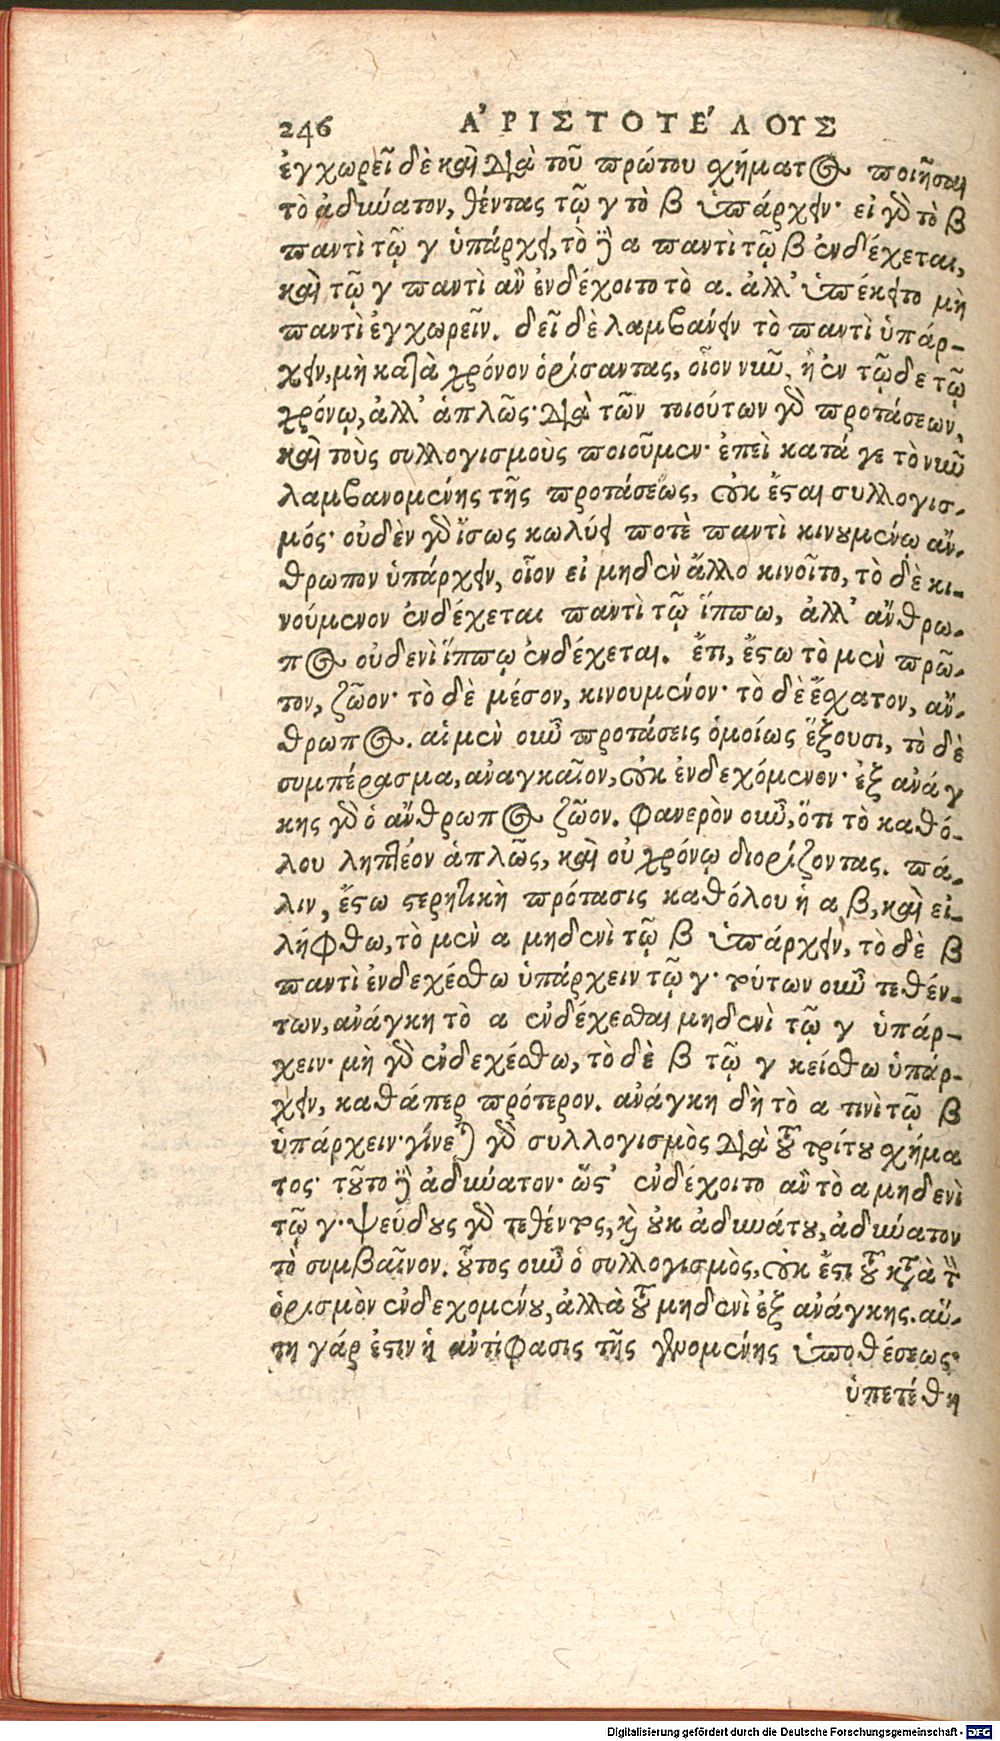 246 ἈΡΙΣΤΟΤΈΛΟΥΣ
ἐγχωρεῖ δὲ καὶ διὰ τοῦ πρώτου σχήματος ποιῆσαι
τὸ ἀδύνατον, θέντας τῷ γ τὸ β ὑπάρχειν· εἰ γὰρ τὸ β
παντὶ τῷ γ ὑπάρχει, τὸ δὲ α παντὶ τῷ β ἐνδέχεται,
καὶ τῷ γ παντὶ ἂν ἐνδέχοιτο τὸ α. ἀλλ' ὑπέκειτο μὴ
παντὶ ἐγχωρεῖν. δεῖ δὲ λαμβάνειν τὸ παντὶ ὑπάρ-
χειν, μὴ κατὰ χρόνον ὁρίσαντας, οἷον νῦν, ἢ ἐν τῷδε τῷ
χρόνῳ, ἀλλ' ἁπλῶς· διὰ τῶν τοιούτων γὰρ προτάσεων,
καὶ τοὺς συλλογισμοὺς ποιοῦμεν· ἐπεὶ κατά γε τὸ νῦν
λαμβανομένης τῆς προτάσεως, οὐκ ἔσται συλλογισ-
μός· οὐδὲν γὰρ ἴσως κωλύει ποτὲ παντὶ κινουμένῳ ἄν-
θρωπον ὑπάρχειν, οἷον εἰ μηδὲν ἄλλο κινοῖτο, τὸ δὲ κι-
νούμενον ἐνδέχεται παντὶ τῷ ἵππω, ἀλλ' ἄνθρω-
πος οὐδενὶ ἵππῳ ἐνδέχεται. ἔτι, ἔστω τὸ μὲν πρῶ-
τον, ζῶον· τὸ δὲ μέσον, κινουμένον· τὸ δὲ ἔσχατον, ἄν-
θρωπος. αἱ μὲν οὖν προτάσεις ὁμοίως ἕξουσι, τὸ δὲ
συμπέρασμα, ἀναγκαῖον, οὐκ ἐνδεχόμενον· ἐξ ἀνάγ
κης γὰρ ὁ ἄνθρωπος ζῶον. φανερὸν οὖν, ὅτι τὸ καθό-
λου ληπτέον ἁπλῶς, καὶ οὐ χρόνῳ διορίζοντας. πά-
λιν, ἔστω στερητικὴ πρότασις καθόλου ἡ α β, καὶ εἰ-
λήφθω, τὸ μὲν α μηδενὶ τῷ β ὑπάρχειν, τὸ δὲ β
παντὶ ἐνδεχέσθω ὑπάρχειν τῷ γ· τούτων οὖν τεθέν-
των, ἀνάγκη τὸ α ἐνδέχεσθαι μηδενὶ τῷ γ ὑπάρ-
χειν· μὴ γὰρ ἐνδεχέσθω, τὸ δὲ β τῷ γ κείσθω ὑπάρ-
χειν, καθάπερ πρότερον. ἀνάγκη δὴ τὸ α τινὶ τῷ β
ὑπάρχειν· γίνεται γὰρ συλλογισμὸς διὰ τοῦ τρίτου σχήμα
τος· τοῦτο δὲ ἀδύνατον· ὥστ' ἐνδέχοιτο ἂν τὸ α μηδενὶ
τῷ γ· ψεύδους γὰρ τεθέντος, καὶ οὐκ ἀδυνάτου, ἀδύνατον
τὸ συμβαῖνον. οὗτος οὖν ὁ συλλογισμὸς, οὐκ ἔστι τοῦ κατὰ τὸν
ὁρισμὸν ἐνδεχομένου, ἀλλὰ τοῦ μηδενὶ ἐξ ἀνάγκης. αὕ-
τη γάρ ἐστιν ἡ ἀντίφασις τῆς γενομένης ὑποθέσεως·
ὑπετέθη
Digitalisierung gefördert durch die Deutsche Forschungsgemeinschaft - DFG